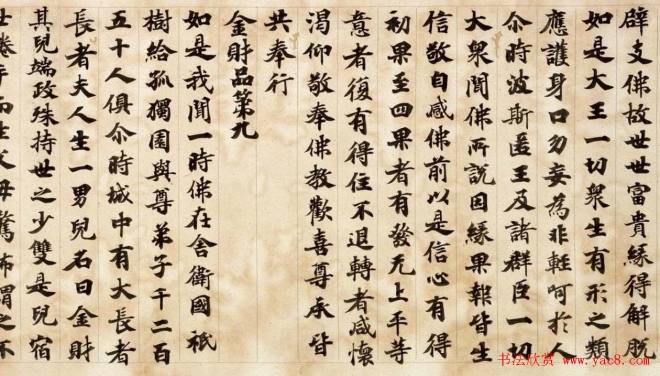 辟支佛故世世富貴緣得解脫
如是大王一切衆生有形之類
應護身口勿妄為非輕呵於人
尒時波斯匿王及諸群臣一切
大衆聞佛所說因緣果報皆生
信敬自感佛前以是信心有得
初果至四果者有發无上平等
意者復有得住不退轉者咸懷
渴仰敬奉佛教歡喜尊承皆
共奉行
金財品第九
如是我聞一時佛在舍衛國祇
樹給孤獨園與尊弟子千二百
五十人俱尒時城中有大長者
長者夫人生一男兒名曰金財
其兒端政殊特世之少雙是兒宿
卷手而生父母驚怖謂之不
书法欣赏 www.yac8.com